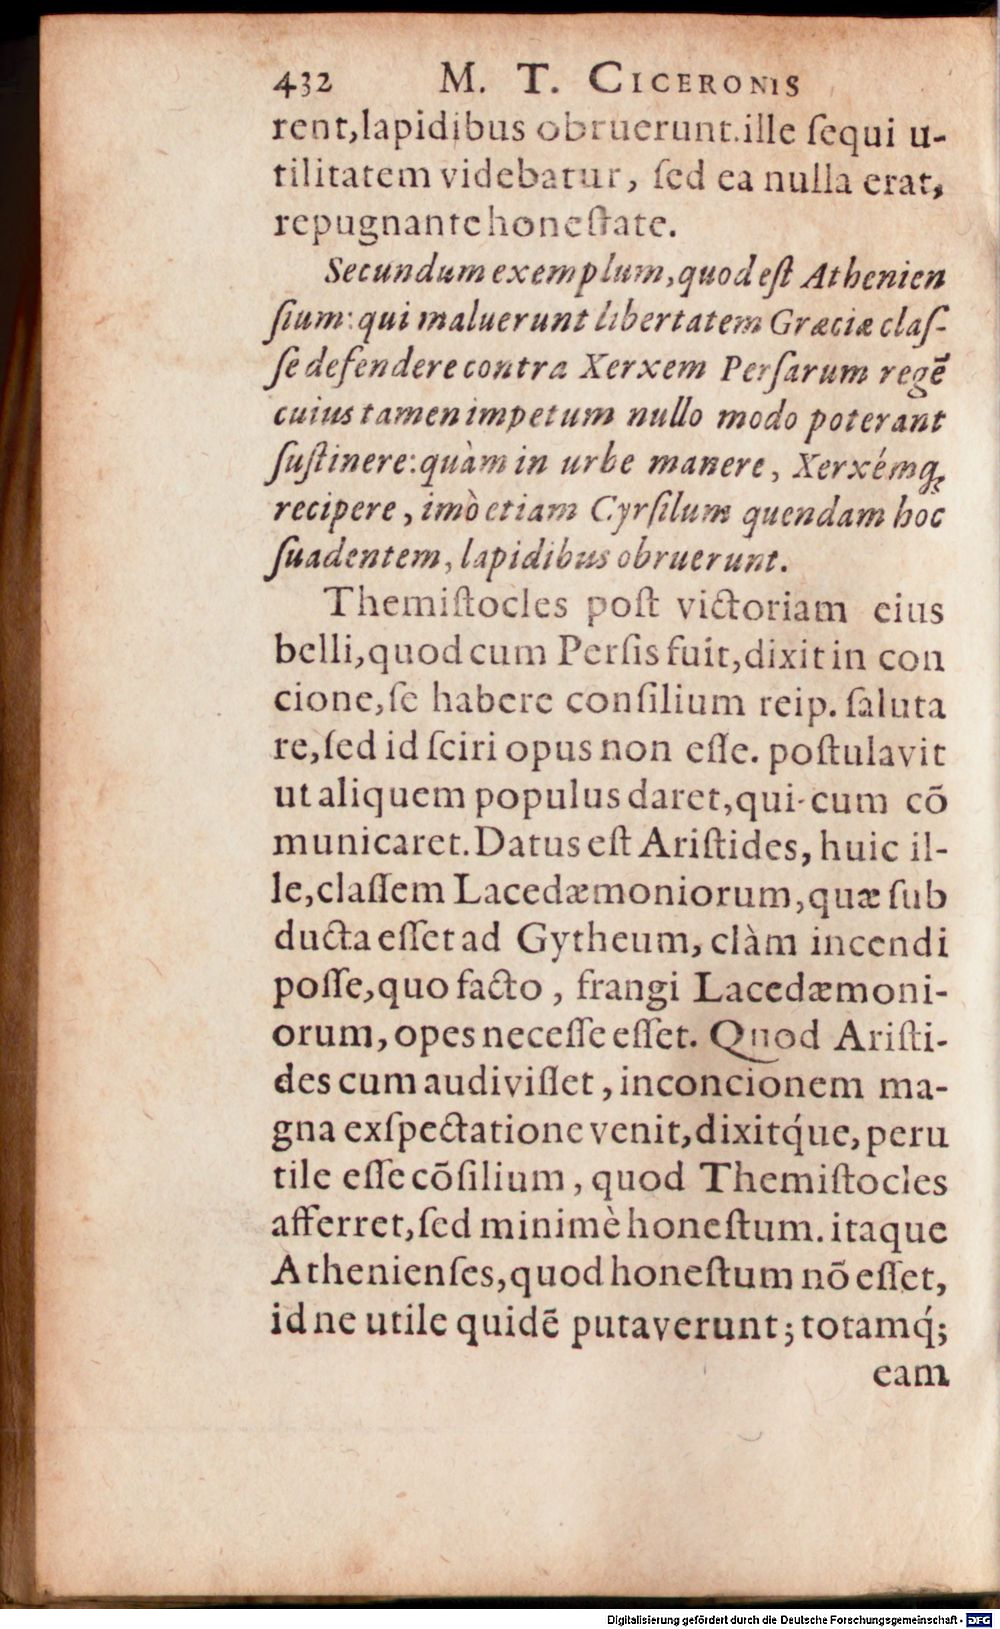 432 M. T. CICERONIS
rent,lapidibus obruerunt.ille ſequi u-
tilitatem videbatur, ſed ea nulla erat,
repugnante honeſtate.
Secundum exemplum,quod eſt Athenien
ſium: qui maluerunt libertatem Græciæ claſ-
ſe defendere contra Xerxem Perſarum regē
cuius tamen impetum nullo modo poterant
ſuſtinere: quàm in urbe manere, Xerxémq;
recipere, imò etiam Cyrſilum quendam hoc
ſuadentem, lapidibus obruerunt.
Themiſtocles poſt victoriam eius
belli,quod cum Perſis fuit,dixit in con
cione,ſe habere conſilium reip. ſaluta
re,ſed id ſciri opus non eſſe. poſtulavit
ut aliquem populus daret,qui-cum cō
municaret.Datus eſt Ariſtides, huic il-
le,claſſem Lacedæmoniorum,quæ ſub
ducta eſſet ad Gytheum, clàm incendi
poſſe,quo facto, frangi Lacedæmoni-
orum, opes neceſſe eſſet. Quod Ariſti-
des cum audiviſſet, inconcionem ma-
gna exſpectatione venit,dixitq́ue, peru
tile eſſe cōſilium, quod Themiſtocles
afferret,ſed minimè honeſtum. itaque
Athenienſes,quod honeſtum nō eſſet,
id ne utile quidē putaverunt; totamq́;
eam
Digitalisierung gefördert durch die Deutsche Forschungsgemeinschaft - DFG